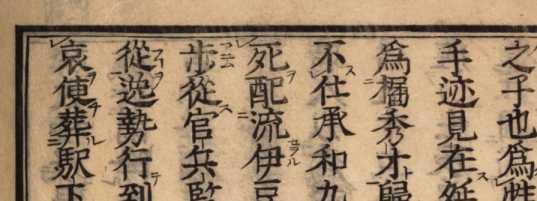 之子也為性
手迹見在延
為橘秀才歸
不仕承和九
死配流伊豆
歩從官兵監
從逸勢行到
哀便葬駅下